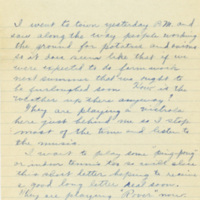 I went to town yesterday P.M. and
saw along the way people working
the ground for potatoes and onions
so it does seem like that if we
were expected to do farm work
next summer that we ought to
be furloughed soon. How is the
weather up there anyway?
They are playing a victrola
here just behind me so I stop
most of the time and listen to
the music.
I want to play some ping-pong
or indoor tennis too so will close
this short letter hoping to receive
a good long letter real soon.
They are playing Rover now.